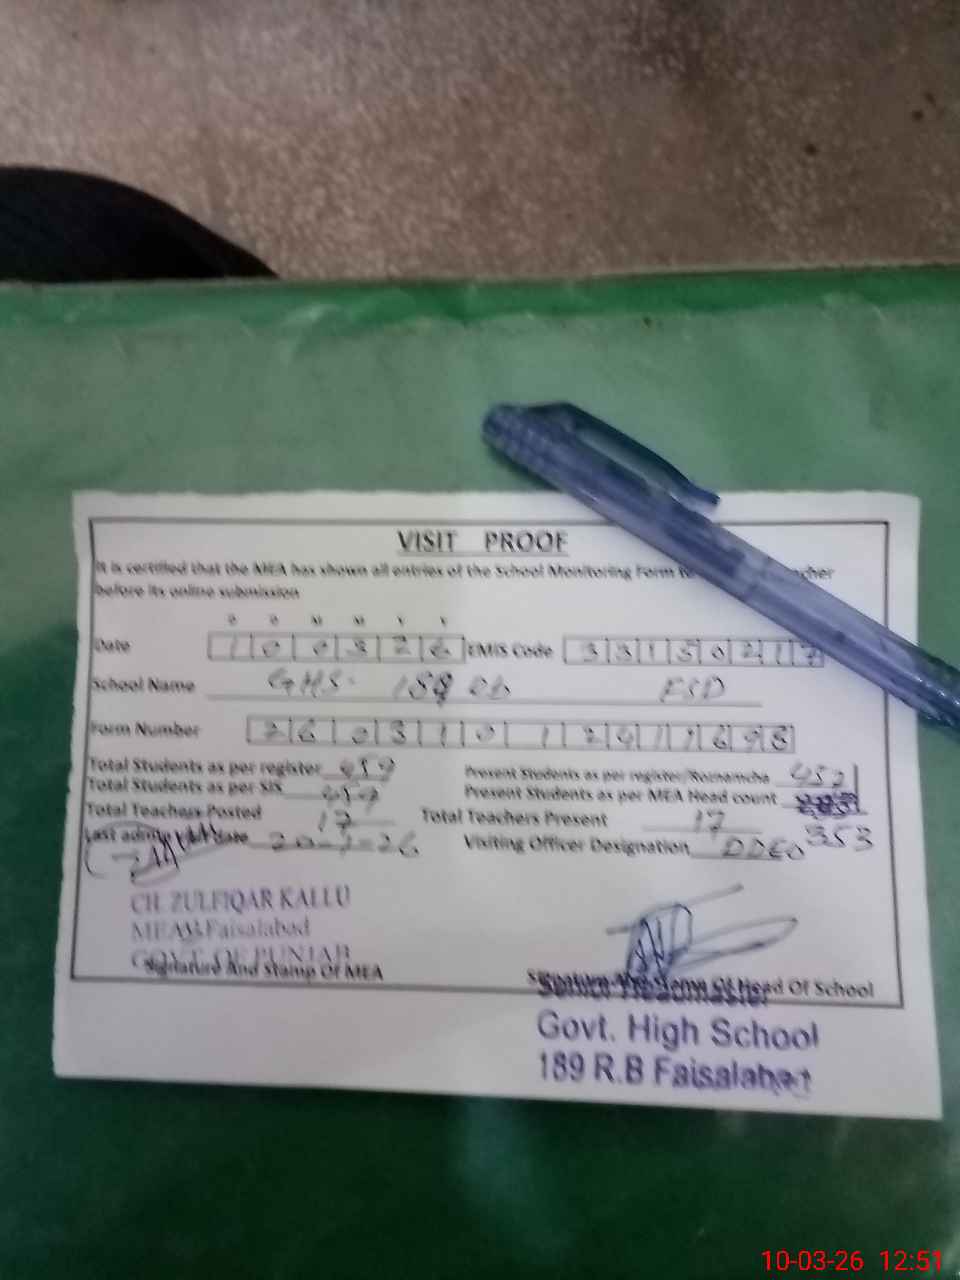 VISIT PROOF
It is certified that the MEA has shown all entries of the School Monitoring Form
before its online submission
D D M M Y Y
Date 1 0 0 3 2 6 EMIS Code 3 3 1 5 0 2 1 7
School Name GHS 189 RB FSD
Form Number 2 6 0 3 1 0 1 2 4 1 1 6 9 8
Total Students as per register 459 Present Students as per register/Roznamcha
Total Students as per SIS 459 Present Students as per MEA Head count 353
Total Teachers Posted 17 Total Teachers Present 17
Last admn visit date Visiting Officer Designation DDEO
CH. ZULFIQAR KALLU
MEA Faisalabad
GOVT. OF PUNJAB
Signature And Stamp Of MEA
Signature And Stamp Of Head Of School
Senior Headmaster
Govt. High School
189 R.B Faisalabad
10-03-26 12:51